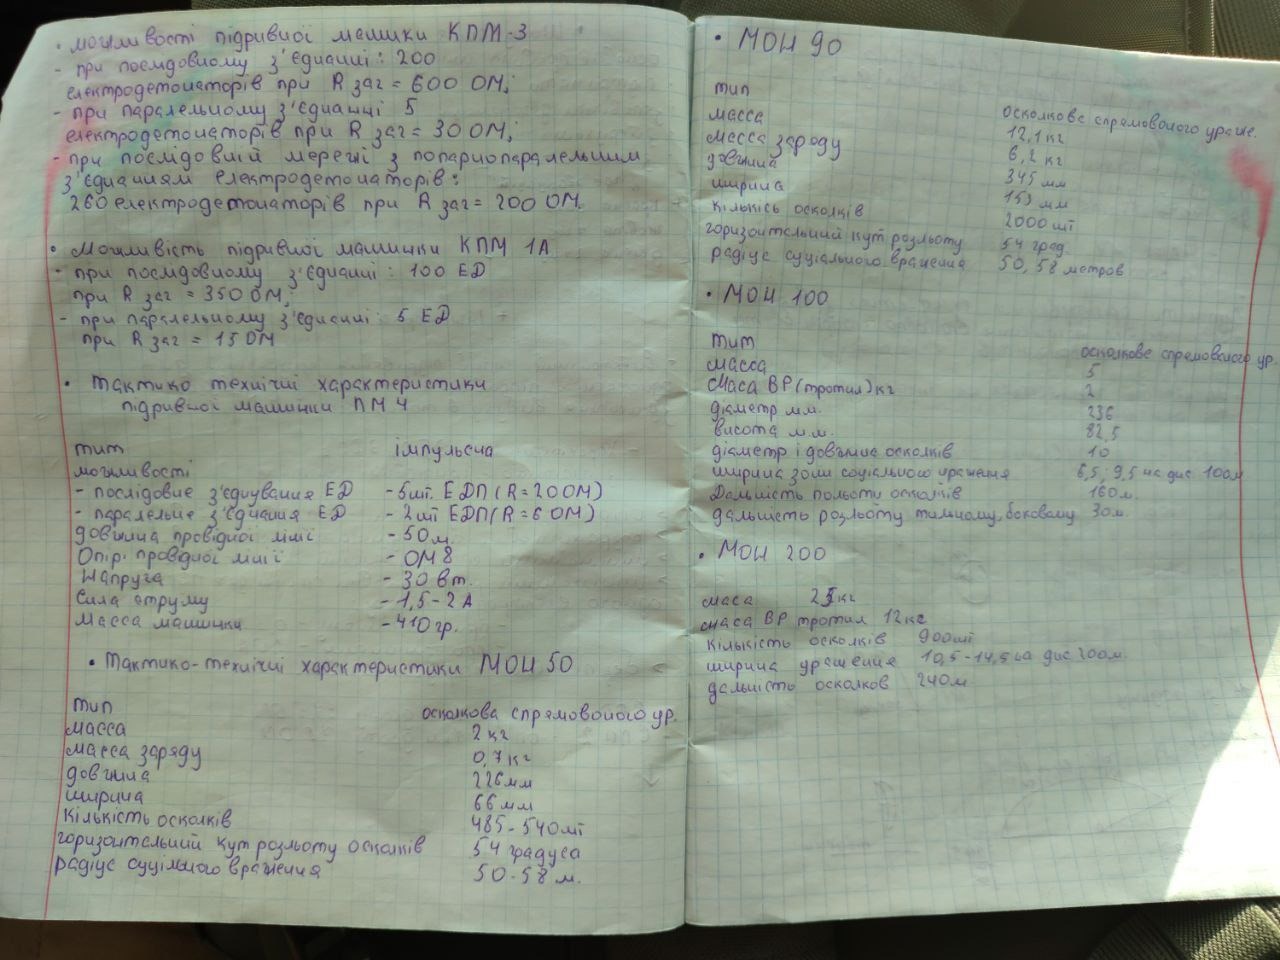 • можливості підривної машики КПМ-3
- при послідовному з'єднанні: 200
електродетонаторів при R заг = 600 ОМ;
- при паралельному з'єднанні 5
електродетонаторів при R заг = 30 ОМ;
- при послідовній мережі з попарнопаралельним
з'єднанням електродетонаторів:
260 електродетонаторів при R заг = 200 ОМ.
• Можливість підривної машинки КПМ 1А
- при послідовному з'єднанні: 100 ЕД
при R заг = 350 ОМ;
- при паралельному з'єднанні: 5 ЕД
при R заг = 15 ОМ
• Тактико технічні характеристики
підривної машинки ПМ 4
тип імпульсна
можливості
- послідовне з'єднування ЕД - 5шт. ЕДП (R = 20 ОМ)
- паралельне з'єднання ЕД - 2шт ЕДП (R = 6 ОМ)
довжина провідної лінії - 50м.
Опір. провідної лінії - ОМ 8
Напруга - 30 вт.
Сила струму - 1,5-2 А
Масса машинки - 410 гр.
• Тактико-технічні характеристики МОН 50
тип осколкова спрямованого ур.
масса 2 кг
масса заряду 0,7 кг
довжина 226 мм
ширина 66 мм
кількість осколків 485-540шт
горизонтельний кут розльоту осколків 54 градуса
радіус суцільного враження 50-58 м.
• МОН 90
тип осколкове спрямованого ураже.
масса 12,1 кг
масса зароду 6,2 кг
довжина 345 мм
ширина 153 мм
кількісь осколків 2000 шт
горизонтельний кут розльоту 54 град
радіус суціального враження 50, 58 метров
• МОН 100
тип осколкове спрямованого ур.
масса 5
Маса ВР (тротил) кг 2
діаметр мм. 236
висота м.м. 82,5
діаметр і довжина осколків 10
ширина зони соціального ураження 6,5; 9,5 на дис 100м
Дальність польоту осколків 160 м.
дальність розльоту тильному, боковому 30м.
• МОН 200
маса 25 кг
маса ВР тротил 12 кг
кількість осколків 900шт
ширина ураження 10,5-14,5 на дис 200м.
дальність осколков 240м